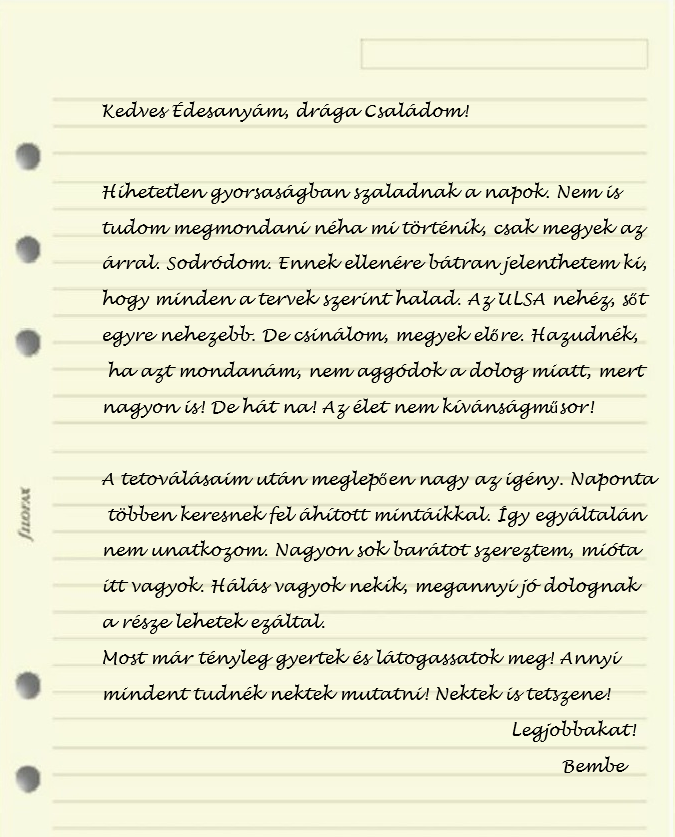 Kedves Édesanyám, drága Családom!
Hihetetlen gyorsaságban szaladnak a napok. Nem is
tudom megmondani néha mi történik, csak megyek az
árral. Sodródom. Ennek ellenére bátran jelenthetem ki,
hogy minden a tervek szerint halad. Az ULSA nehéz, sőt
egyre nehezebb. De csinálom, megyek előre. Hazudnék,
ha azt mondanám, nem aggódok a dolog miatt, mert
nagyon is! De hát na! Az élet nem kívánságműsor!
A tetoválásaim után meglepően nagy az igény. Naponta
többen keresnek fel áhított mintáikkal. Így egyáltalán
nem unatkozom. Nagyon sok barátot szereztem, mióta
itt vagyok. Hálás vagyok nekik, megannyi jó dolognak
a része lehetek ezáltal.
Most már tényleg gyertek és látogassatok meg! Annyi
mindent tudnék nektek mutatni! Nektek is tetszene!
Legjobbakat!
Bembe
filofax